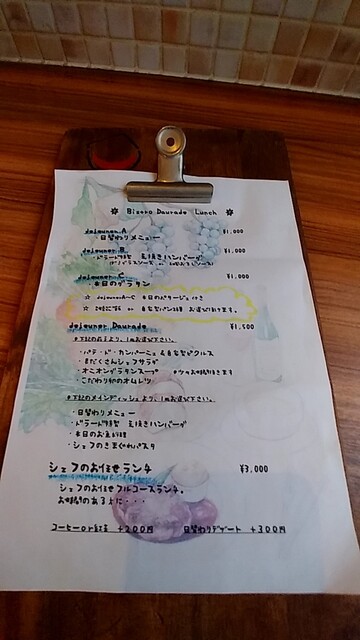 Bistro Daurade Lunch
dejeuner A ¥1,000
・日替わりメニュー
dejeuner B ¥1,000
・ドラード特製 瓦焼きハンバーグ
dejeuner C ¥1,000
・本日のグラタン
☆ dejeunerA〜C 本日のポタージュ付き
☆ ご飯 or 自家製パン お選び頂けます。
dejeuner Daurade ¥1,500
*下記の前菜より、1品お選び下さい。
・パテ・ド・カンパーニュ & 自家製ピクルス
・具だくさんシェフサラダ
・オニオングラタンスープ
・こだわり卵のオムレツ
*下記のメインディッシュより、1品お選び下さい。
・日替わりメニュー
・ドラード特製 瓦焼きハンバーグ
・本日のお魚料理
・シェフのきまぐれパスタ
シェフのお任せランチ ¥3,000
シェフのお任せフルコースランチ。
お時間のある方に・・・
コーヒーor紅茶 +200円 日替わりデザート +300円